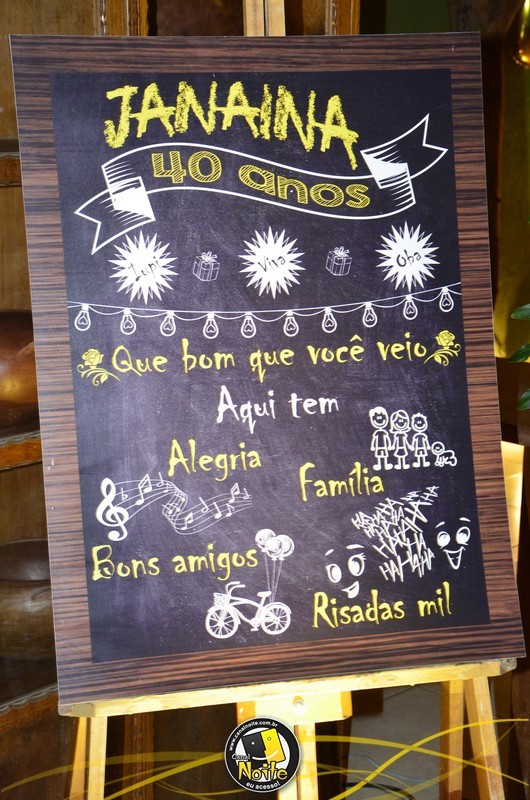 JANAINA
40 anos
Viva
Oba
Que bom que você veio
Aqui tem
Alegria
Família
Bons amigos
Risadas mil
www.canalnoite.com.br
Canal
Noite
eu acesso!